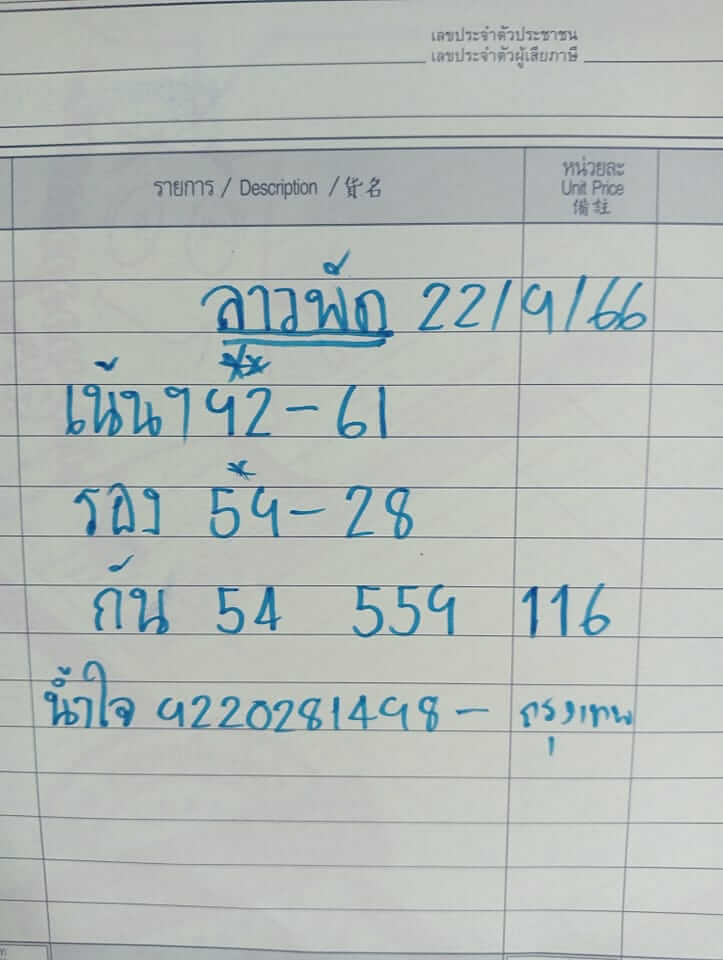 เลขประจำตัวประชาชน
เลขประจำตัวผู้เสียภาษี
รายการ / Description / 貨名
หน่วยละ
Unit Price
備註
ลาวพัด 22/9/66
เน้นๆ 92-61
รอง 59-28
กัน 54 559 116
น้ำใจ 9220281498- กรุงเทพ